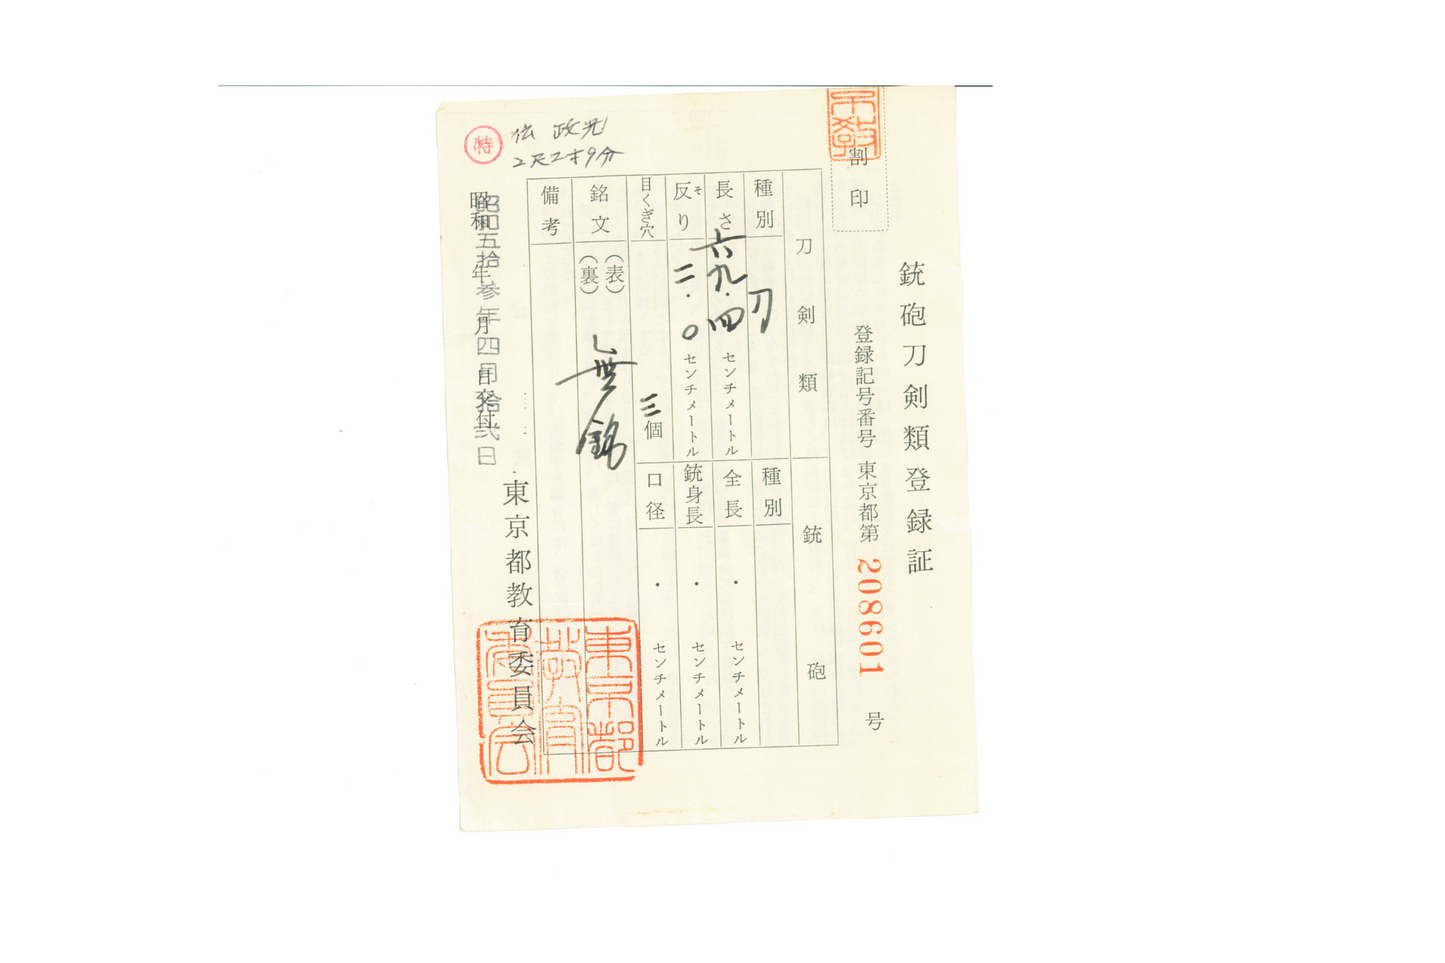 銃砲刀剣類登録証
割印
登録記号番号 東京都第 208601 号
刀剣類
種別 刀
長さ 六九・四 センチメートル
反り そ 二・〇 センチメートル
目くぎ穴 三個
銘文 (表) (裏) 無銘
備考
銃砲
種別
全長 ・ センチメートル
銃身長 ・ センチメートル
口径 ・ センチメートル
昭和 年 月 日交付
昭和五拾参年四月拾弐日
東京都教育委員会
東京都教育委員会
特
伝 政光
2尺2寸9分